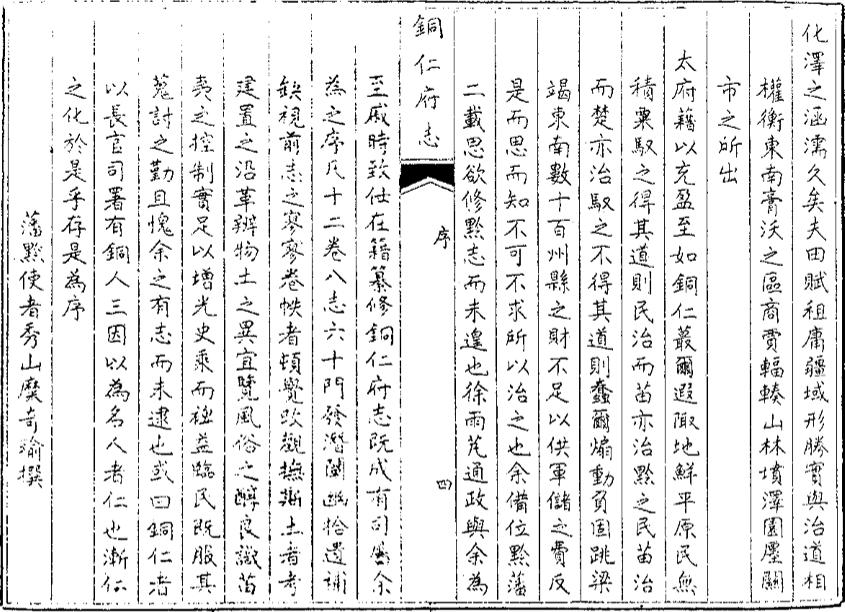 化澤之涵濡久矣夫田賦租庸疆域形勝實與治道相
權衡東南膏沃之區商賈輻輳山林墳澤園廛關
市之所出
太府藉以充盈至如銅仁蕞爾遐陬地鮮平原民無
積粟馭之得其道則民治而苗亦治黔之民苗治
而楚亦治馭之不得其道則蠢爾煽動負固跳梁
竭東南數十百州縣之財不足以供軍儲之費反
是而思而知不可不求所以治之也余備位黔藩
二載思欲修黔志而未遑也徐雨芃通政與余為
銅仁府志
序
四
至戚時致仕在籍纂修銅仁府志既成有司屬余
為之序凡十二卷八志六十門發潛闡幽拾遺補
缺視前志之寥寥卷帙者頓覺改觀撫斯土者考
建置之沿革辨物土之異宜覽風俗之醇良識苗
夷之控制實足以增光史乘而裨益臨民既服其
蒐討之勤且愧余之有志而未逮也或曰銅仁者
以長官司署有銅人三因以為名人者仁也漸仁
之化於是乎存是為序
藩黔使者秀山糜奇瑜撰